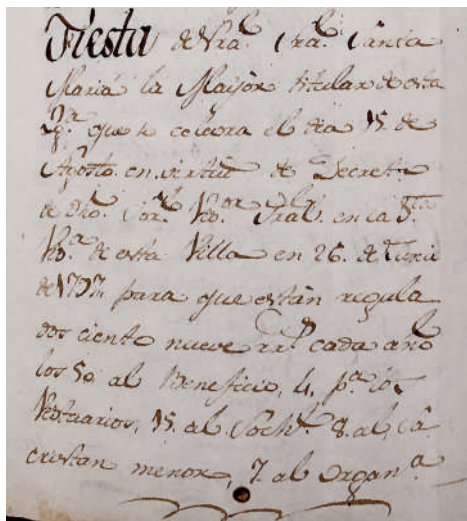 Fiesta de Nrâ. Srâ. Santa
Maria la Mayòr titular de esta
Ygª. que se celebra el dia 15. de
Agosto. en virtud de Decreto
de dho. Sor. Vor. Gral. en la Stª
Vª. de esta Villa en 26. de Junio
de 1797. para que están regula
dos ciento nueve rrs. cada año
los 50. al Beneficio, 4. pª. los
Vestuarios, 15. al Soch. 8. al Sa
cristan menor, 7. al Organª